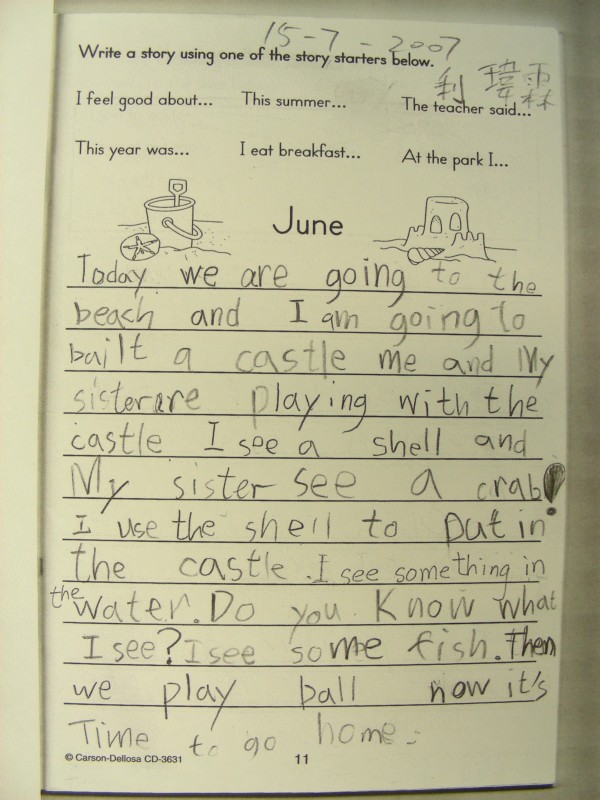 15-7-2007
Write a story using one of the story starters below.
利 瑋霖
I feel good about... This summer... The teacher said...
This year was... I eat breakfast... At the park I...
June
Today we are going to the
beach and I am going to
bailt a castle me and My
sister are playing with the
castle I see a shell and
My sister see a crab!
I use the shell to put in
the castle. I see something in
the water. Do you know what
I see? I see some fish. Then
we play ball now it's
Time to go home.
© Carson-Dellosa CD-3631 11